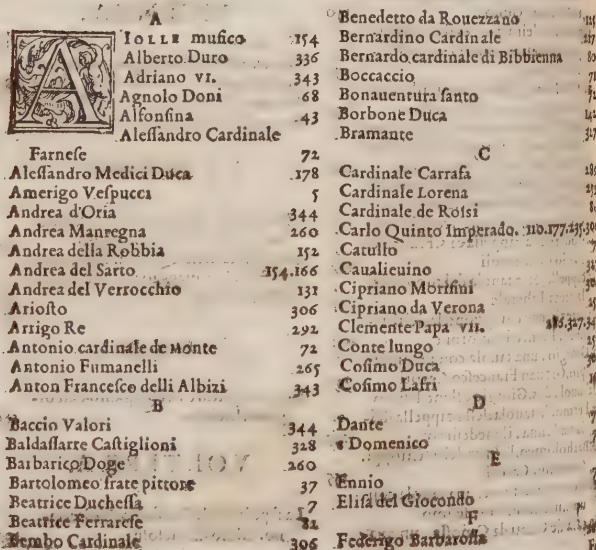 A
AIOLLE musico 154
Alberto Duro 336
Adriano VI. 343
Agnolo Doni 68
Alfonsina 43
Alessandro Cardinale
Farnese 72
Alessandro Medici Duca 178
Amerigo Vespucci 5
Andrea d'Oria 344
Andrea Mantegna 260
Andrea della Robbia 152
Andrea del Sarto 154.166
Andrea del Verrocchio 131
Ariosto 306
Arrigo Re 292
Antonio cardinale de Monte 72
Antonio Fumanelli 265
Anton Francesco delli Albizi 343
B
Baccio Valori 344
Baldassarre Castiglioni 328
Barbarico Doge 260
Bartolomeo frate pittore 37
Beatrice Duchessa 7
Beatrice Ferrarese 82
Bembo Cardinale 306
Benedetto da Rouezzano
Bernardino Cardinale
Bernardo cardinale di Bibbienna
Boccaccio
Bonauentura santo
Borbone Duca
Bramante
C
Cardinale Carrafa
Cardinale Lorena
Cardinale de Rossi
Carlo Quinto Imperado. 110.177.235.
Catullo
Caualieuino
Cipriano Morisini
Cipriano da Verona
Clemente Papa VII. 327.
Conte lungo
Cosimo Duca
Cosimo Lasri
D
Dante
s Domenico
E
Ennio
Elisa del Giocondo
F
Federigo Barbarossa